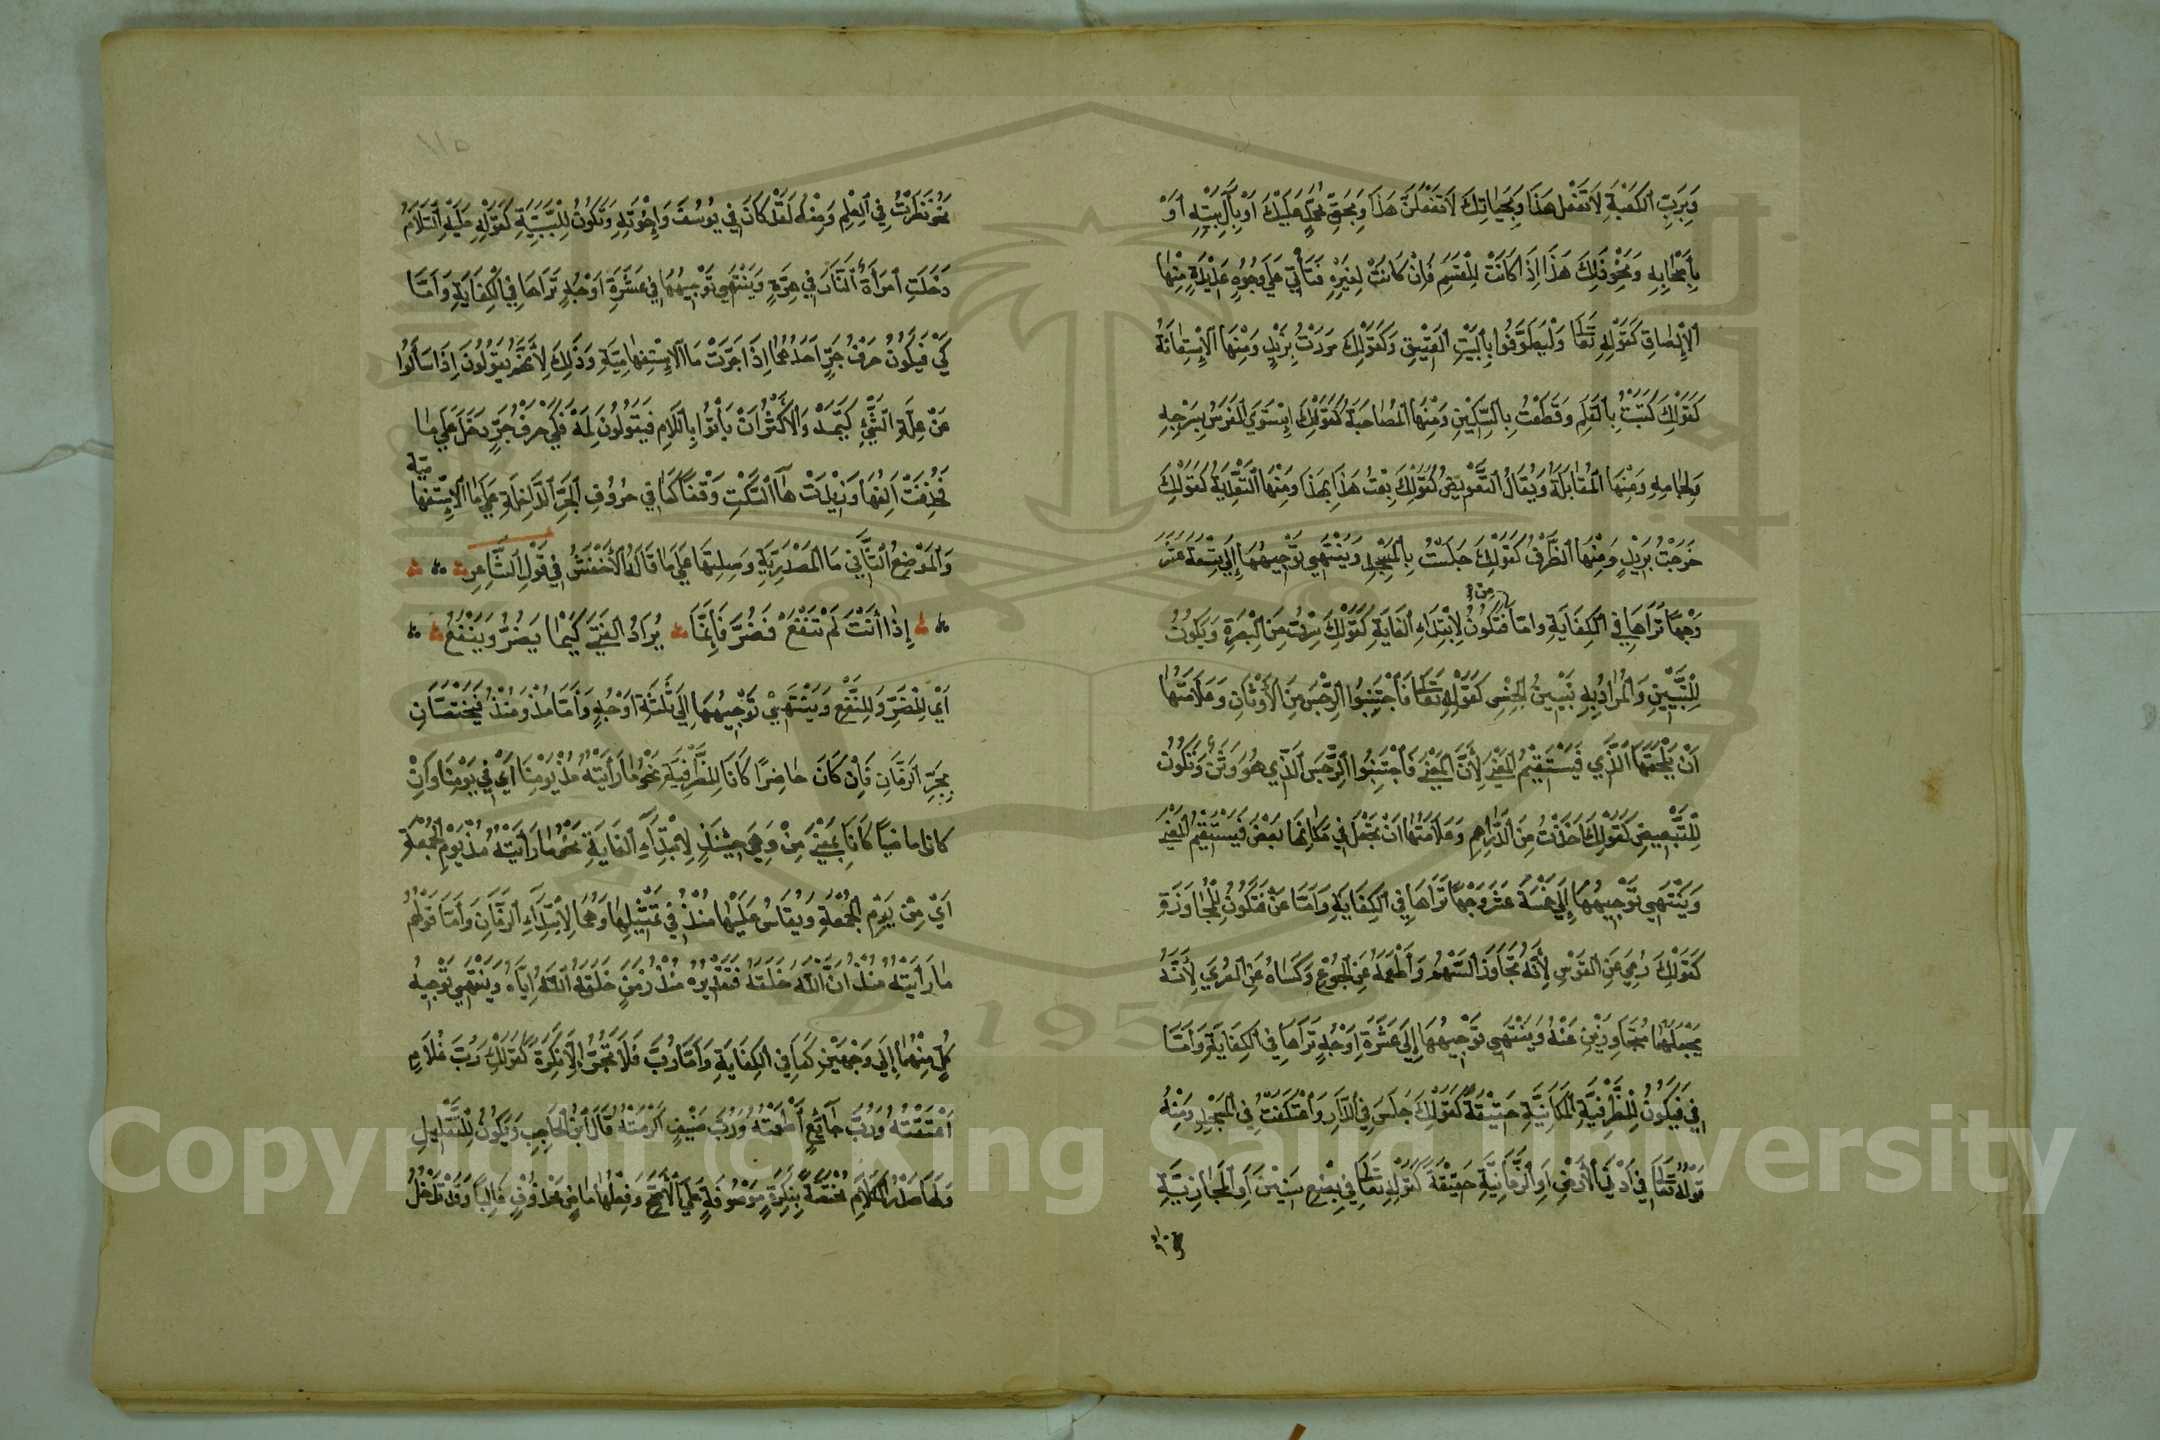 وَبِرَبِّ الكَعْبَةِ لَا تَفْعَلْ هَذَا وَبِحَيَاتِكَ لَا تَفْعَلَنَّ هَذَا وَبِحَقِّ مُحَمَّدٍ عَلَيْكَ اَوْ بِآلِ بَيْتِهِ اَوْ
بِأَصْحَابِهِ وَنَحْوِ ذَلِكَ هَذَا اِذَا كَانَتْ لِلْقَسَمِ فَاِنْ كَانَتْ لِغَيْرِهِ فَتَأْتِي عَلَى وُجُوهٍ عَدِيْدَةٍ مِنْهَا
الْاِلْصَاقِ كَقَوْلِهِ تَعَالَى وَلْيَطَّوَّفُوا بِالْبَيْتِ الْعَتِيْقِ وَكَقَوْلِكَ مَرَرْتُ بِزَيْدٍ وَمِنْهَا الْاِسْتِعَانَةُ
كَقَوْلِكَ كَتَبْتُ بِالْقَلَمِ وَقَطَعْتُ بِالسِّكِّيْنِ وَمِنْهَا الْمُصَاحَبَةُ كَقَوْلِكَ اِشْتَرَي الْفَرَسَ بِسَرْجِهِ
وَلِجَامِهِ وَمِنْهَا الْمُقَابَلَةُ وَيُقَالُ التَّعْوِيْضُ كَقَوْلِكَ بِعْتُ هَذَا بِهَذَا وَمِنْهَا التَّعْدِيَةُ كَقَوْلِكَ
خَرَجْتُ بِزَيْدٍ وَمِنْهَا الظَّرْفُ كَقَوْلِكَ جَلَسْتُ بِالْمَسْجِدِ وَيَنْتَهِي تَوْجِيْهُهَا إِلَى تِسْعَةَ عَشَرَ
وَجْهًا تَرَاهَا فِي الْكِفَايَةِ وَامّا مِنْ فَتَكُوْنُ لِابْتِدَاءِ الْغَايَةِ كَقَوْلِكَ سِرْتُ مِنَ الْبَصْرَةِ وَيَكُوْنُ
لِلتَّبْيِيْنِ وَالْمُرَادُ بِهِ تَبْيِيْنُ الْجِنْسِ كَقَوْلِهِ تَعَالَى فَاجْتَنِبُوا الرِّجْسَ مِنَ الْأَوْثَانِ وَعَلَامَتُهَا
اَنْ يَلْحَقَهَا الَّذِي فَيَسْتَقِيْمُ الْمَعْنَى لِأَنَّ الْمَعْنَى فَاجْتَنِبُوا الرِّجْسَ الَّذِي هُوَ وَثَنٌ وَتَكُوْنُ
لِلتَّبْعِيْضِ كَقَوْلِكَ اَخَذْتُ مِنَ الدَّرَاهِمِ وَعَلَامَتُهَا اَنْ تَجْعَلَ فِي مَكَانِهَا بَعْضَ فَيَسْتَقِيْمُ الْمَعْنَى
وَيَنْتَهِي تَوْجِيْهُهَا إِلَى خَمْسَةَ عَشَرَ وَجْهًا تَرَاهَا فِي الْكِفَايَةِ وَاَمَّا عَنْ فَتَكُوْنُ لِلْمُجَاوَزَةِ
كَقَوْلِكَ رُمِيَ عَنِ الْقَوْسِ لِأَنَّهُ تَجَاوَزَ السَّهْمُ وَأَطْعَمَهُ عَنِ الْجُوْعِ وَكَسَاهُ عَنِ الْعُرْيِ لِأَنَّهُ
يَجْعَلُهُمَا مُتَجَاوِزَيْنِ عَنْهُ وَيَنْتَهِي تَوْجِيْهُهَا إِلَى عَشَرَةِ اَوْجُهٍ تَرَاهَا فِي الْكِفَايَةِ وَاَمَّا
فِي فَيَكُوْنُ لِلظَّرْفِيَّةِ الْمَكَانِيَّةِ حَقِيْقَةً كَقَوْلِكَ جَلَسَ فِي الدَّارِ وَاعْتَكَفْتُ فِي الْمَسْجِدِ وَمِنْهُ
قَوْلُهُ تَعَالَى فِي اَدْنَى الْأَرْضِ اَوِ الزَّمَانِيَّةِ حَقِيْقَةً كَقَوْلِهِ تَعَالَى فِي بِضْعِ سِنِيْنَ اَوِ الْمَجَازِيَّةِ
نَحْوُ نَظَرْتُ فِي الْعِلْمِ وَمِنْهُ لَقَدْ كَانَ فِي يُوسُفَ وَاِخْوَتِهِ وَتَكُوْنُ لِلسَّبَبِيَّةِ كَقَوْلِهِ عَلَيْهِ السَّلَامُ
دَخَلَتِ امْرَأَةٌ النَّارَ فِي هِرَّةٍ وَيَنْتَهِي تَوْجِيْهُهَا فِي عَشَرَةِ اَوْجُهٍ تَرَاهَا فِي الْكِفَايَةِ وَاَمَّا
كَيْ فَيَكُوْنُ حَرْفُ جَرٍّ اَحَدُهُمَا اِذَا جَرَّتْ مَا الْاِسْتِفْهَامِيَّةِ وَذَلِكَ لِأَنَّهُمْ يَقُولُونَ اِذَا سَأَلُوا
عَنْ عِلَّةِ الشَّيْءِ كَيْمَهْ وَالْأَكْثَرُ اَنْ يَأْتُوا بِاللَّامِ فَيَقُولُونَ لِمَهْ فَكَيْ حَرْفُ جَرٍّ دَخَلَ عَلَى مَا
فَحُذِفَتْ اَلِفُهَا وَزِيْدَتْ هَاءُ السَّكْتِ وَقْفًا كَمَا فِي حُرُوْفِ الْجَرِّ الدَّاخِلَةِ عَلَى مَا الْاِسْتِفْهَامِيَّة
وَالْمَوْضِعُ الثَّانِي مَا الْمَصْدَرِيَّةِ وَصِلَتِهَا عَلَى مَا قَالَهُ الْأَخْفَشُ فِي قَوْلِ الشَّاعِرِ
إِذَا أَنْتَ لَمْ تَنْفَعْ فَضُرَّ فَإِنَّمَا يُرَادُ الْفَتَى كَيْمَا يَضُرُّ وَيَنْفَعُ
اَيْ لِلضَّرِّ وَلِلنَّفْعِ وَيَنْتَهِي تَوْجِيْهُهَا إِلَى ثَلَثَةِ اَوْجُهٍ وَأَمَّا مُذْ وَمُنْذُ فَيَخْتَصَّانِ
بِجَرِّ الزَّمَانِ فَاِنْ كَانَ حَاضِرًا كَانَا لِلظَّرْفِيَّةِ نَحْوُ مَا رَأَيْتُهُ مُذْ يَوْمِنَا اَيْ فِي يَوْمِنَا وَاِنْ
كَانَا مَاضِيًا كَانَا بِمَعْنَى مِنْ وَهِيَ حِيْنَئِذٍ لِابْتِدَاءِ الْغَايَةِ نَحْوُ مَا رَأَيْتُهُ مُذْ يَوْمِ الْجُمُعَةِ
اَيْ مِنْ يَوْمِ الْجُمُعَةِ وَيُقَاسُ عَلَيْهَا مُنْذُ فِي تَمْثِيْلِهَا وَهُمَا لِابْتِدَاءِ الزَّمَانِ وَأَمَّا قَوْلُهُمْ
مَا رَأَيْتُهُ مُنْذُ اَنَّ اللّٰهَ خَلَقَهُ فَتَقْدِيْرُهُ مُنْذُ زَمَنِ خَلَقَهُ اللّٰهُ اِيَّاهُ وَيَنْتَهِي تَوْجِيْهُ
كُلٍّ مِنْهُمَا إِلَى وَجْهَيْنِ كَمَا فِي الْكِفَايَةِ وَاَمَّا رُبَّ فَلَا تَجُرُّ اِلَّا نَكِرَةً كَقَوْلِكَ رُبَّ غُلَامٍ
اَعْتَقْتُهُ وَرُبَّ جَائِعٍ أَطْعَمْتُهُ وَرُبَّ ضَيْفٍ اَكْرَمْتُهُ قَالَ ابْنُ الْحَاجِبِ وَتَكُوْنُ لِلتَّقْلِيْلِ
وَلَهَا صَدْرُ الْكَلَامِ مُخْتَصَّةٌ بِنَكِرَةٍ مَوْصُوفَةٍ عَلَى الْأَصَحِّ وَفِعْلُهَا مَاضٍ مَحْذُوْفٌ غَالِبًا وَقَدْ تَدْخُلُ
١١٥
Copyright © King Saud University
1957